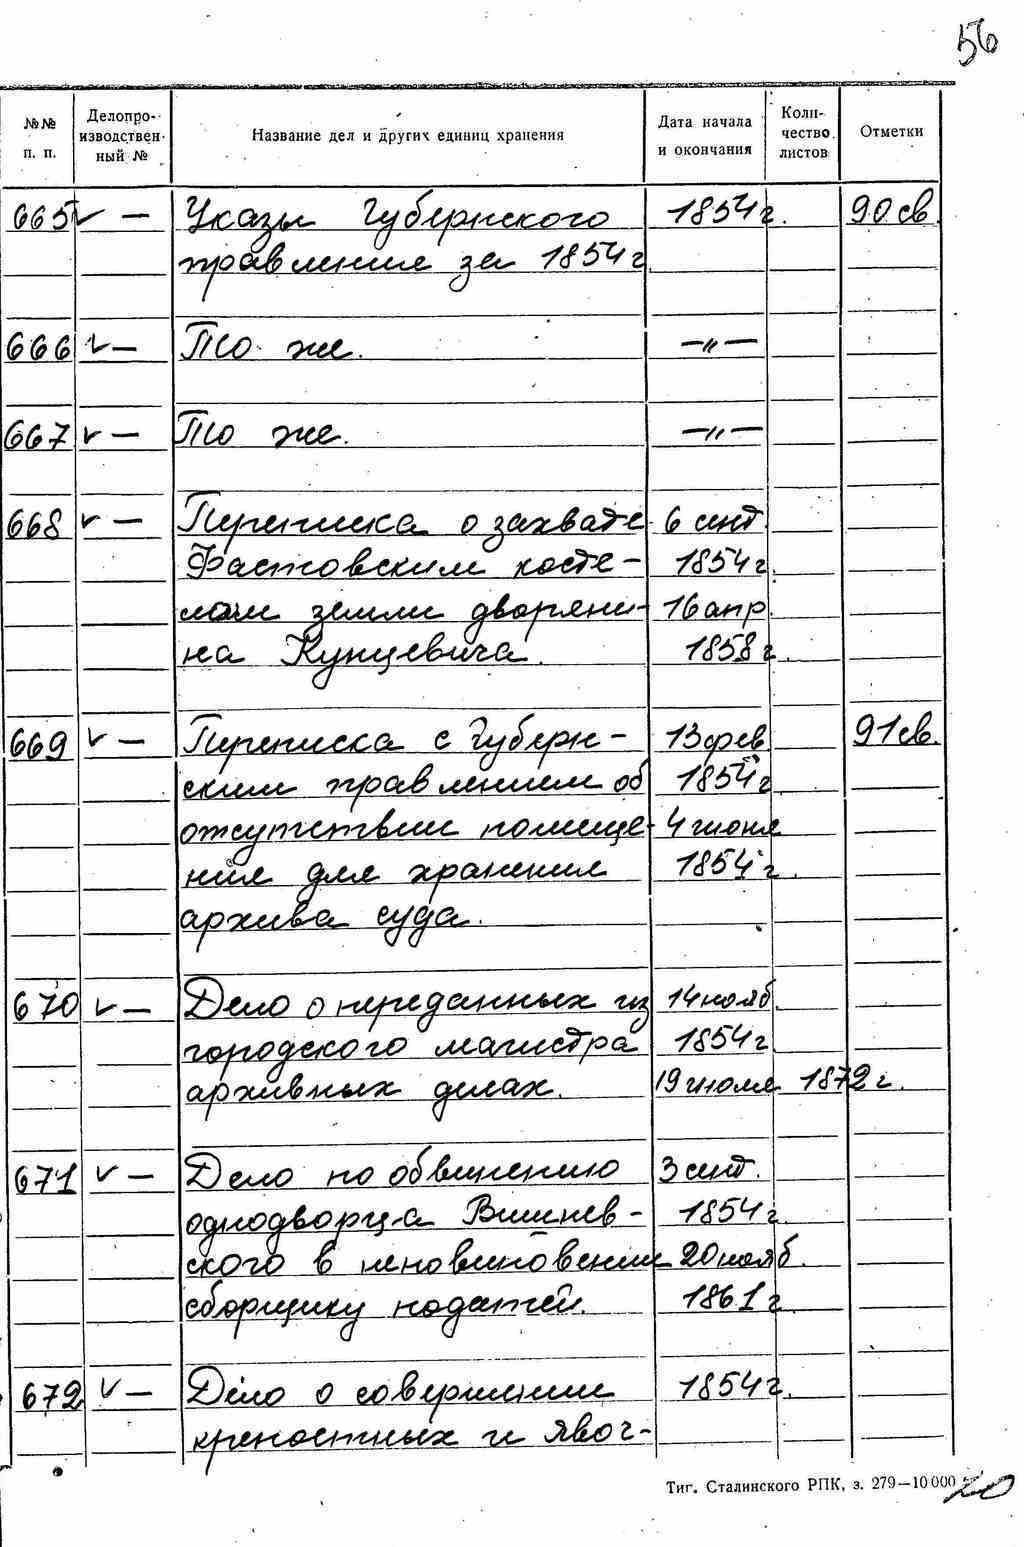 56
№№ п. п. Делопро-изводствен-ный № Название дел и других единиц хранения Дата начала и окончания Коли-чество листов Отметки
665 ✓ — Указы Губернского 1854 г. 90 св.
правления за 1854 г
666 ✓ — То же. —"—
667 ✓ — То же. —"—
668 ✓ — Переписка о захвате 6 сент
Фастовским косте- 1854 г.
лом земли дворяни- 16 апр.
на Кунцевича. 1858 г.
669 ✓ — Переписка с Губерн- 13 фев 91 св.
ским правлением об 1854 г.
отсутствии помеще- 4 июня
ния для хранения 1854 г.
архива суда.
670 ✓ — Дело о переданных из 14 нояб.
городского магистра 1854 г.
архивных делах. 19 июля 1872 г.
671 ✓ — Дело по обвинению 3 сент.
однодворца Вишнев- 1854 г.
ского в неповиновении 20 нояб.
сборщику податей. 1861 г.
672 ✓ — Дело о совершении 1854 г.
крепостных и явоч-
Тиг. Сталинского РПК, з. 279—10 000
20